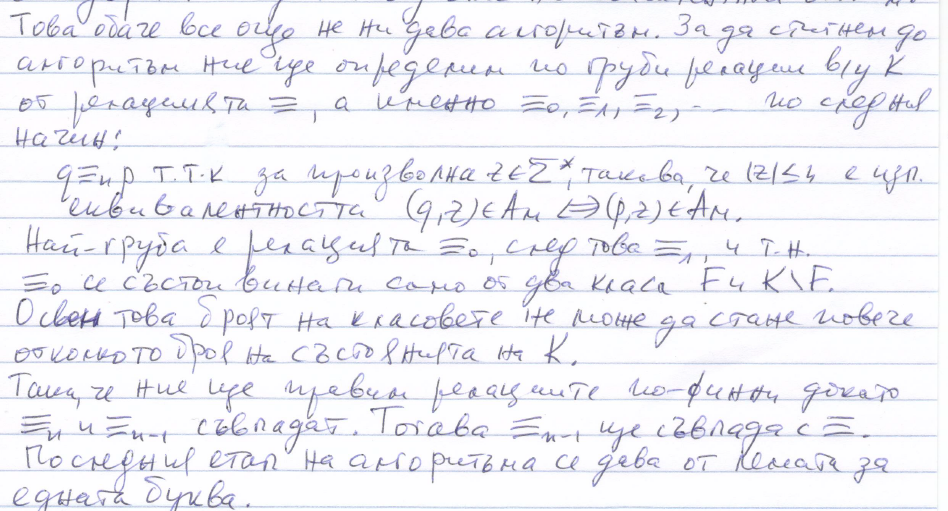 Това обаче все още не ни дава алгоритъм. За да стигнем до
алгоритъм ние ще определим по груби релации в/у K
от релацията ≡, а именно ≡₀, ≡₁, ≡₂, ... по следния
начин:
q≡ₙp т.т.к за произволна z∈Σ*, такова, че |z|≤n е изп.
еквивалентността (q,z)∈Aм ⇔ (p,z)∈Aм.
Най-груба е релацията ≡₀, след това ≡₁, и т.н.
≡₀ се състои винаги само от два класа F и K\F.
Освен това броят на класовете не може да стане повече
отколкото броя на състоянията на K.
Така, че ние ще правим релациите по-финни докато
≡ₙ и ≡ₙ₋₁ съвпадат. Тогава ≡ₙ₋₁ ще съвпада с ≡.
Последния етап на алгоритъма се дава от лемата за
едната буква.